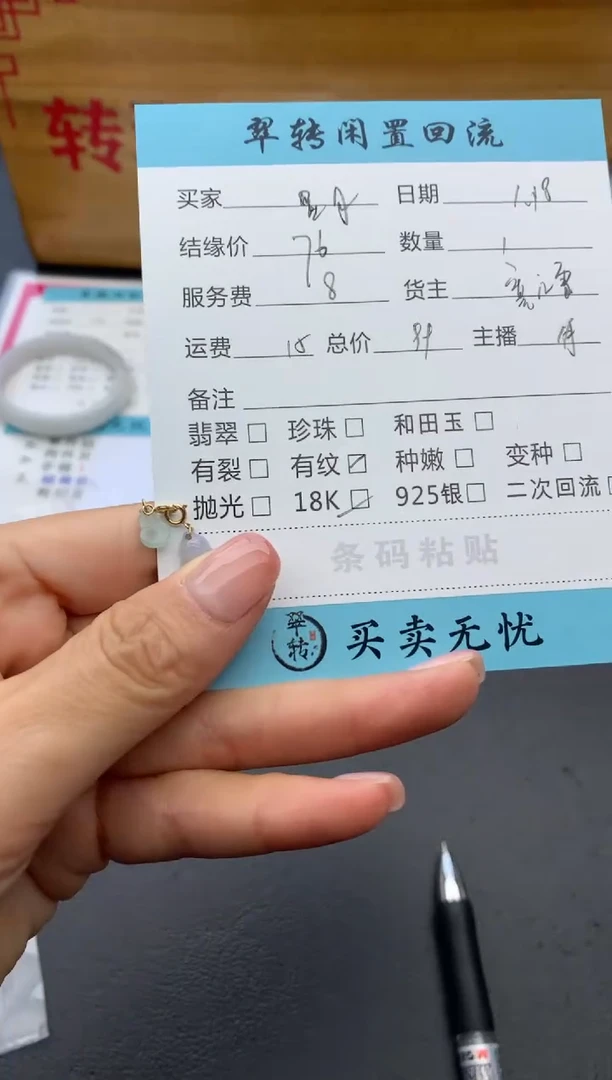 转
翠转闲置回流
买家 日期 1.18
结缘价 76 数量 1
服务费 8 货主
运费 15 总价 主播
备注
翡翠 珍珠 和田玉
有裂 有纹 种嫩 变种
抛光 18K 925银 二次回流
条码粘贴
翠转 买卖无忧